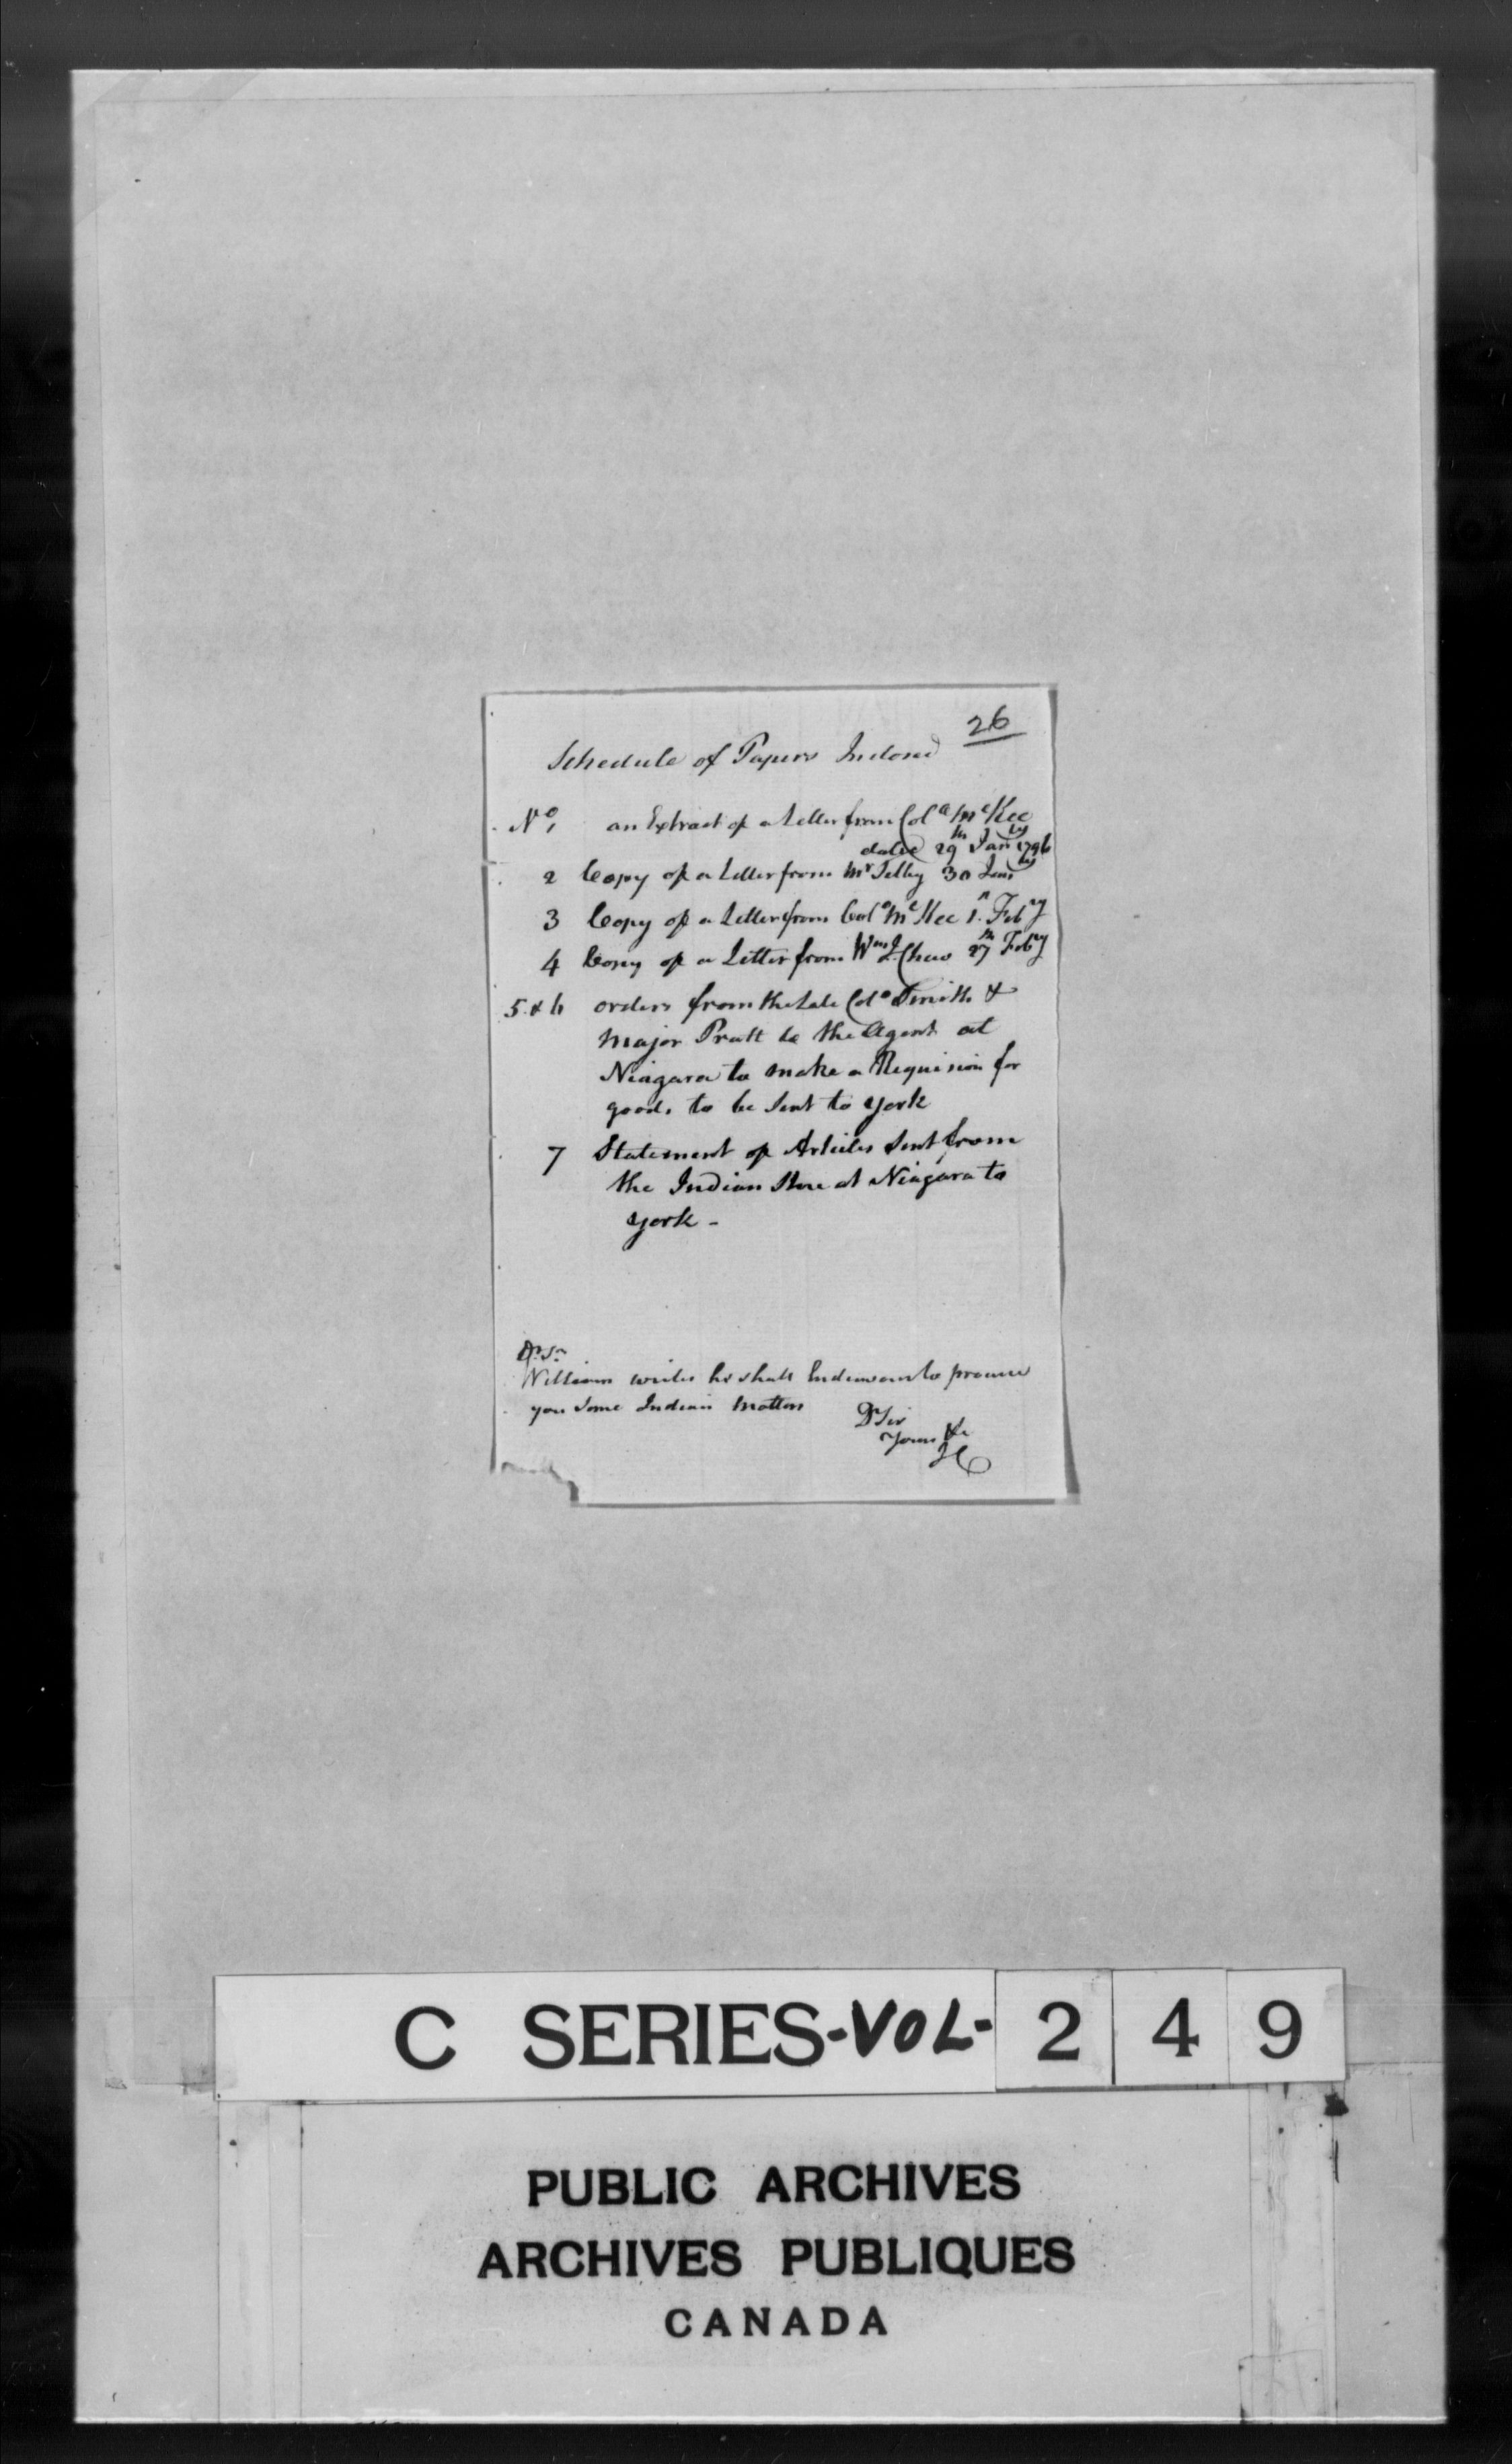 26
Schedule of Papers Inclosed
No 1 an Extract of a Letter from Colo McKee
dated 29th Jany 1796
2 Copy of a Letter from Mr Selby 30 Jany
3 Copy of a Letter from Colo McKee 1st Feby
4 Copy of a Letter from Wm J Chew 27th Feby
5 & 6 orders from the Late Colo Smith &
Major Pratt to the Agent at
Niagara to make a Requision for
goods to be sent to York
7 Statement of Articles Sent from
the Indian Store at Niagara to
York -
Dr Sr
William writes he shall Endeavour to procure
you some Indian Matters
Dr Sir
Yours &c
JC
C SERIES-VOL-249
PUBLIC ARCHIVES
ARCHIVES PUBLIQUES
CANADA